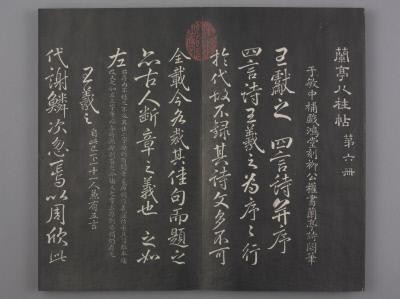 蘭亭八柱帖 第六冊
于敏中補戲鴻堂刻柳公權書蘭亭詩闕筆
王獻之四言詩并序
四言詩王羲之為序序行
於代故不錄其詩文多不可
全載今各裁其佳句而題之
亦古人斷章之義也 之如
左
王羲之 自此已下十一人兼有五言
代謝鱗次忽焉以周欣此